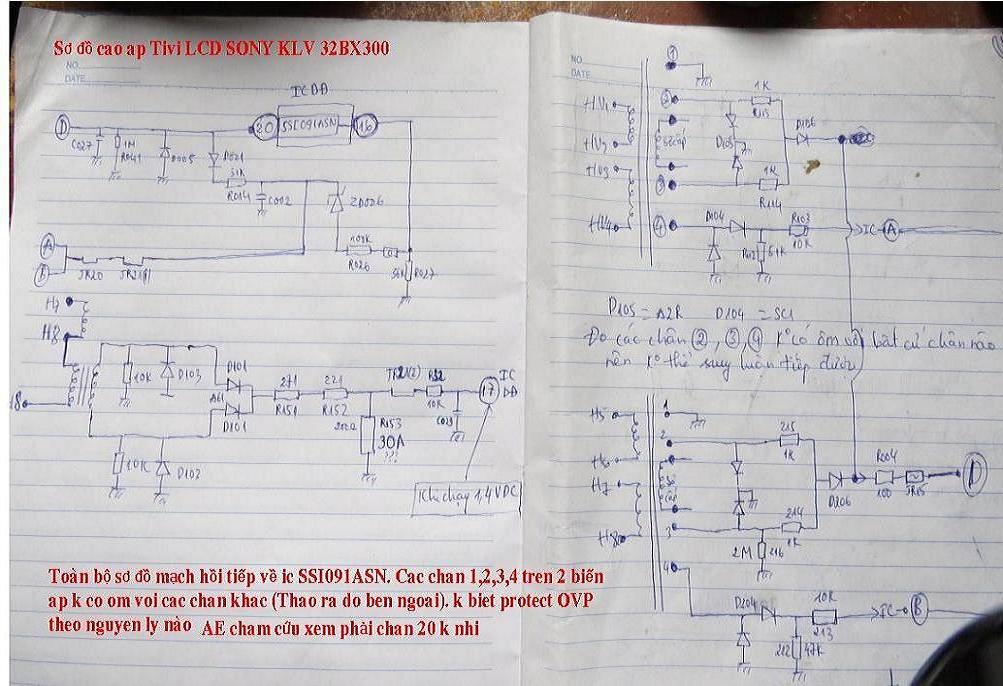 Sơ đồ cao ap Tivi LCD SONY KLV 32BX300
NO.
DATE
IC DD
D
20
SSI091ASN
16
C027
1M
R041
D005
D021
R014
C002
ZD006
100K
R026
R027
A
B
JR20
H7
H8
10K
D103
D101
D101
271
R151
221
R152
R153
30A
???
10K
C029
17
IC
DD
10K
D102
Khi chạy 1,4VDC
Toàn bộ sơ đồ mạch hồi tiếp về ic SSI091ASN. Cac chan 1,2,3,4 tren 2 biến
ap k co om voi cac chan khac (Thao ra do ben ngoai). k biet protect OVP
theo nguyen ly nào AE cham cứu xem phải chan 20 k nhi
NO.
DATE
1
HV1
HV2
HV3
HV4
2
3
4
1K
R113
D105
D106
1K
R114
D104
R103
10K
IC
A
D105 = A2R D104 = SC1
Đo các chân 2, 3, 4 Kº có ôm với bất cứ chân nào
nên Kº thể suy luận tiếp được
H5
H6
H7
H8
1
2
3
4
215
1K
214
1K
2M
216
D206
R004
100
JR15
D
D204
10K
213
212
47K
IC
B